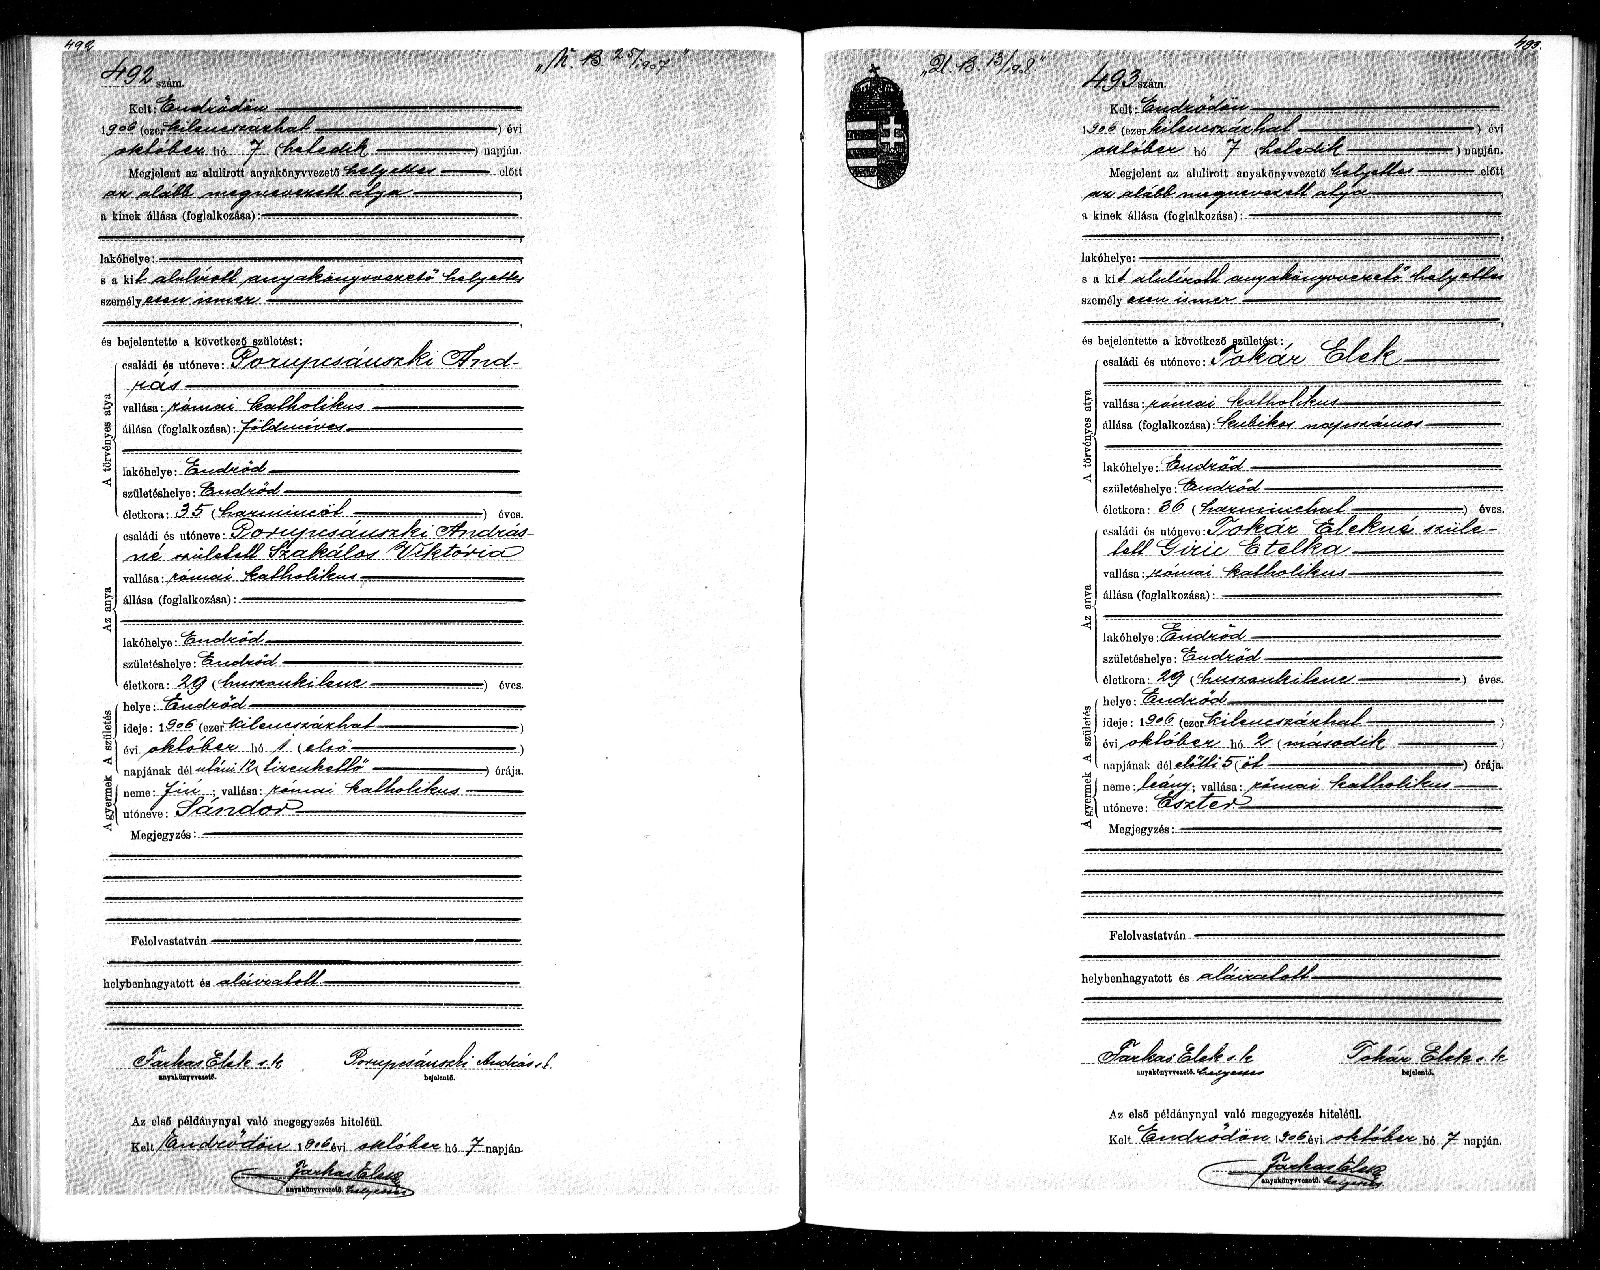 492
492 szám.
„M. B 25/1907"
Kelt: Endrődön
1906 (ezer kilenczszázhat) évi
október hó 7 (hetedik) napján.
Megjelent az alulirott anyakönyvvezető helyettes előtt
az alább megnevezett atya,
a kinek állása (foglalkozása):
lakóhelye:
s a kit alulírott anyakönyvvezető helyettes
személyesen ismer
és bejelentette a következő születést:
A törvényes atya
családi és utóneve: Porupcsánszki And-
rás
vallása: római katholikus
állása (foglalkozása): földmöves
lakóhelye: Endrőd
születéshelye: Endrőd
életkora: 35 (harminczöt) éves.
Az anya
családi és utóneve: Porupcsánszki András-
né született Szakálos Viktória
vallása: római katholikus
állása (foglalkozása):
lakóhelye: Endrőd
születéshelye: Endrőd
életkora: 29 (huszonkilenc) éves.
A születés
helye: Endrőd
ideje: 1906 (ezer kilencszázhat)
évi október hó 1 (első)
napjának dél utáni 12 (tizenkettő) órája.
A gyermek
neme: fiú; vallása: római katholikus
utóneve: Sándor
Megjegyzés:
Felolvastatván
helybenhagyatott és aláiratott
Farkas Elek s.k. Porupcsánszki András s.k.
anyakönyvvezető. bejelentő.
Az első példánynyal való megegyezés hiteléül.
Kelt Endrődön 1906 évi október hó 7 napján
Farkas Elek
anyakönyvvezető. helyettes
493.
493 szám.
Kelt: Endrődön
1906 (ezer kilencszázhat) évi
október hó 7 (hetedik) napján.
Megjelent az alulirott anyakönyvvezető helyettes előtt
az alább megnevezett atya,
a kinek állása (foglalkozása):
lakóhelye:
s a kit alulírott anyakönyvvezető helyettes
személyesen ismer
és bejelentette a következő születést:
A törvényes atya
családi és utóneve: Tokár Elek
vallása: római katholikus
állása (foglalkozása): kubikos napszámos
lakóhelye: Endrőd
születéshelye: Endrőd
életkora: 36 (harminchat) éves.
Az anya
családi és utóneve: Tokár Elekné szüle-
tett Giric Etelka
vallása: római katholikus
állása (foglalkozása):
lakóhelye: Endrőd
születéshelye: Endrőd
életkora: 29 (huszonkilenc) éves.
A születés
helye: Endrőd
ideje: 1906 (ezer kilencszázhat)
évi október hó 2 (második)
napjának dél előtti 5 (öt) órája.
A gyermek
neme: leány; vallása: római katholikus
utóneve: Eszter
Megjegyzés:
Felolvastatván
helybenhagyatott és aláiratott
Farkas Elek s.k. Tokár Elek s.k.
anyakönyvvezető. helyettes bejelentő.
Az első példánynyal való megegyezés hiteléül.
Kelt Endrődön 1906 évi október hó 7 napján.
Farkas Elek
anyakönyvvezető. helyettes